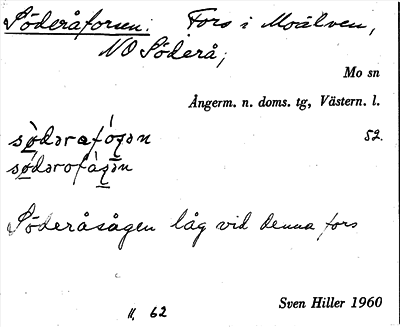 Söderåforsen. Fors i Moälven,
NO Söderå;
Mo sn
Ångerm. n. doms. tg, Västern. l.
52.
Söderåsågen låg vid denna fors
11, 62
Sven Hiller 1960